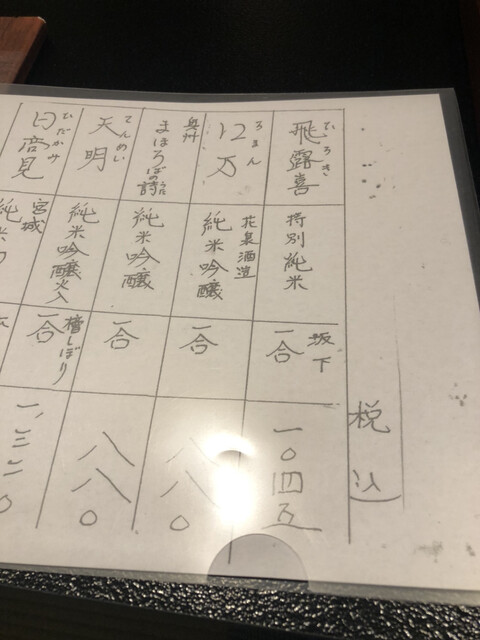 税込)
ひろき
飛露喜
特別純米
坂下
一合
一〇四五
ろまん
ロ万
花泉酒造
純米吟醸
一合
奥州
まほろばの詩
うた
純米吟醸
一合
八八〇
てんめい
天明
純米吟醸火入
槽しぼり
一合
八八〇
ひだかみ
日高見
宮城
純米
一、三二〇